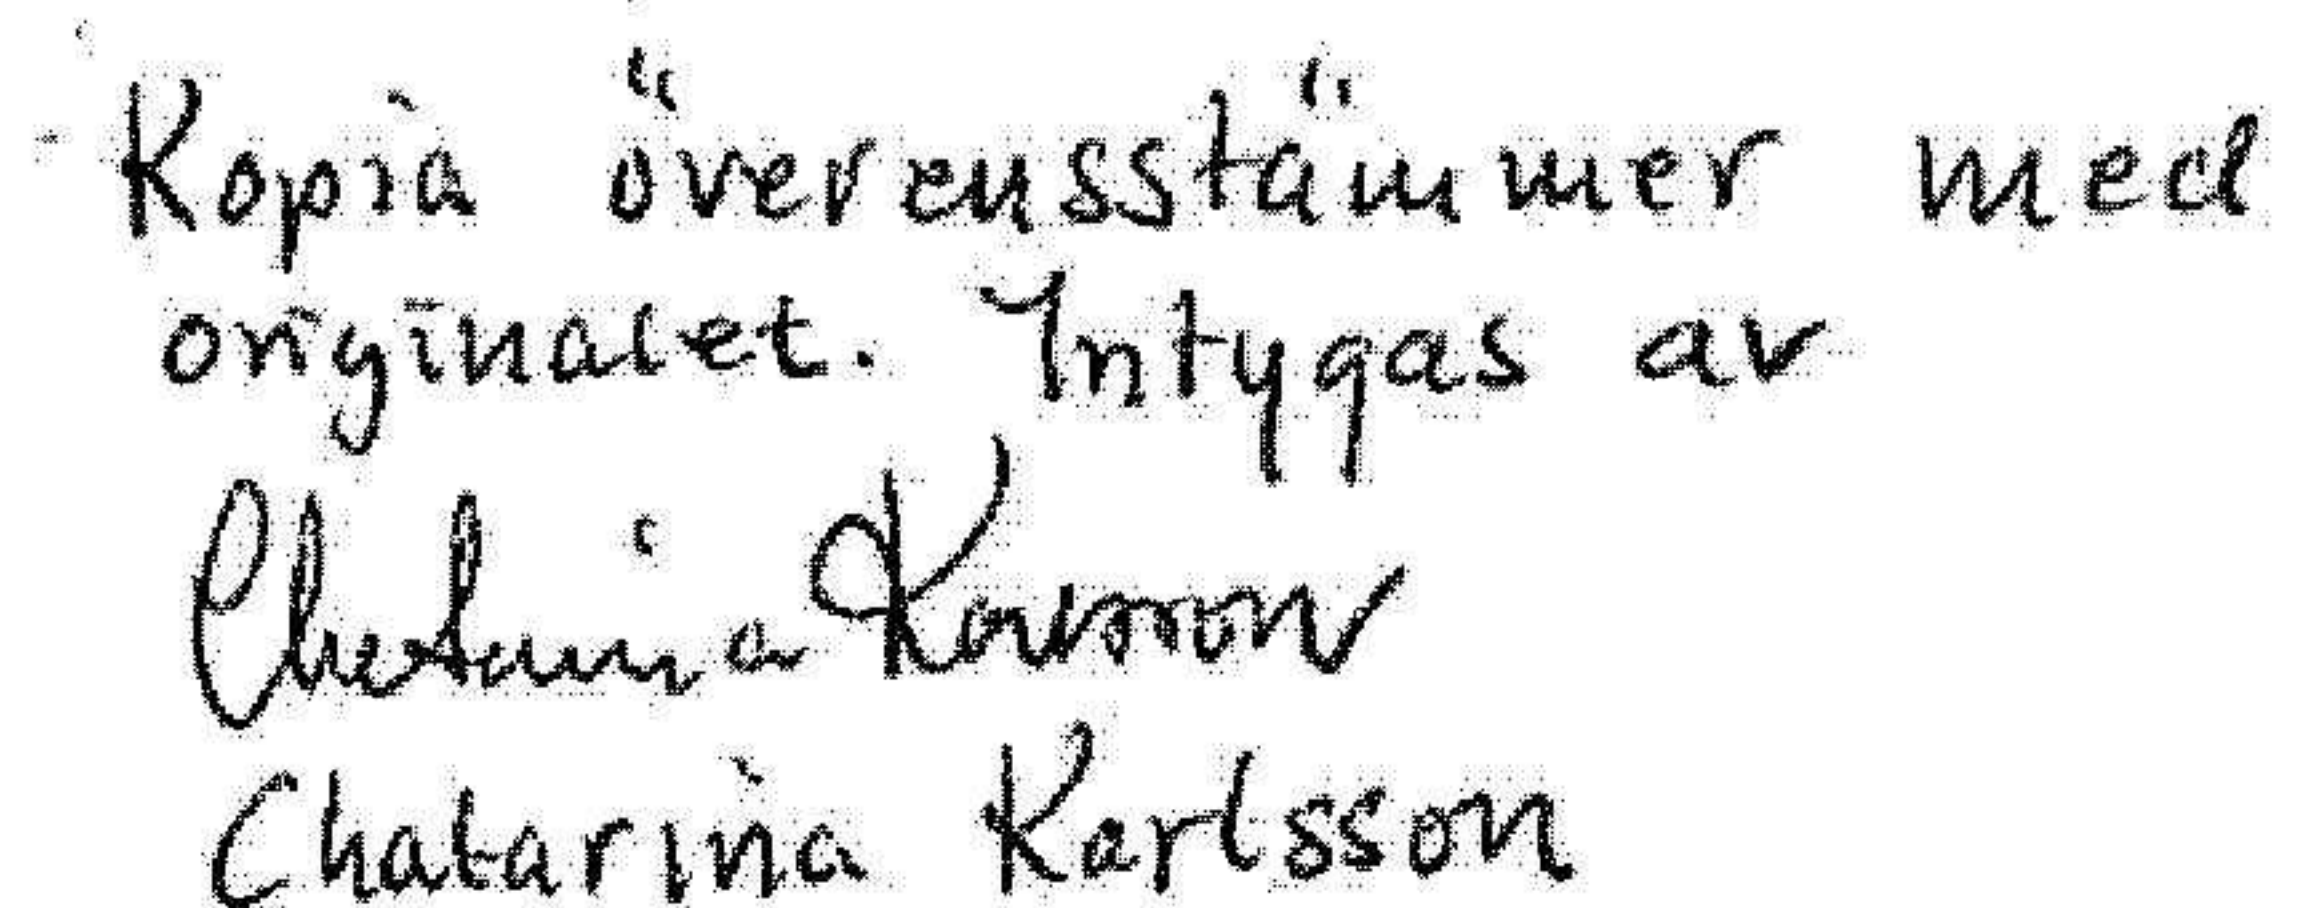 Kopia överensstämmer med
originalet. Intygas av
Chatarina Karlsson
Chatarina Karlsson